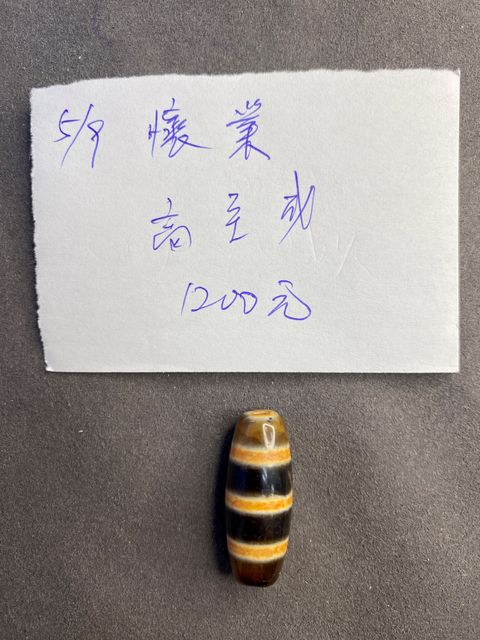 5/9 懷業
高至成
1200元